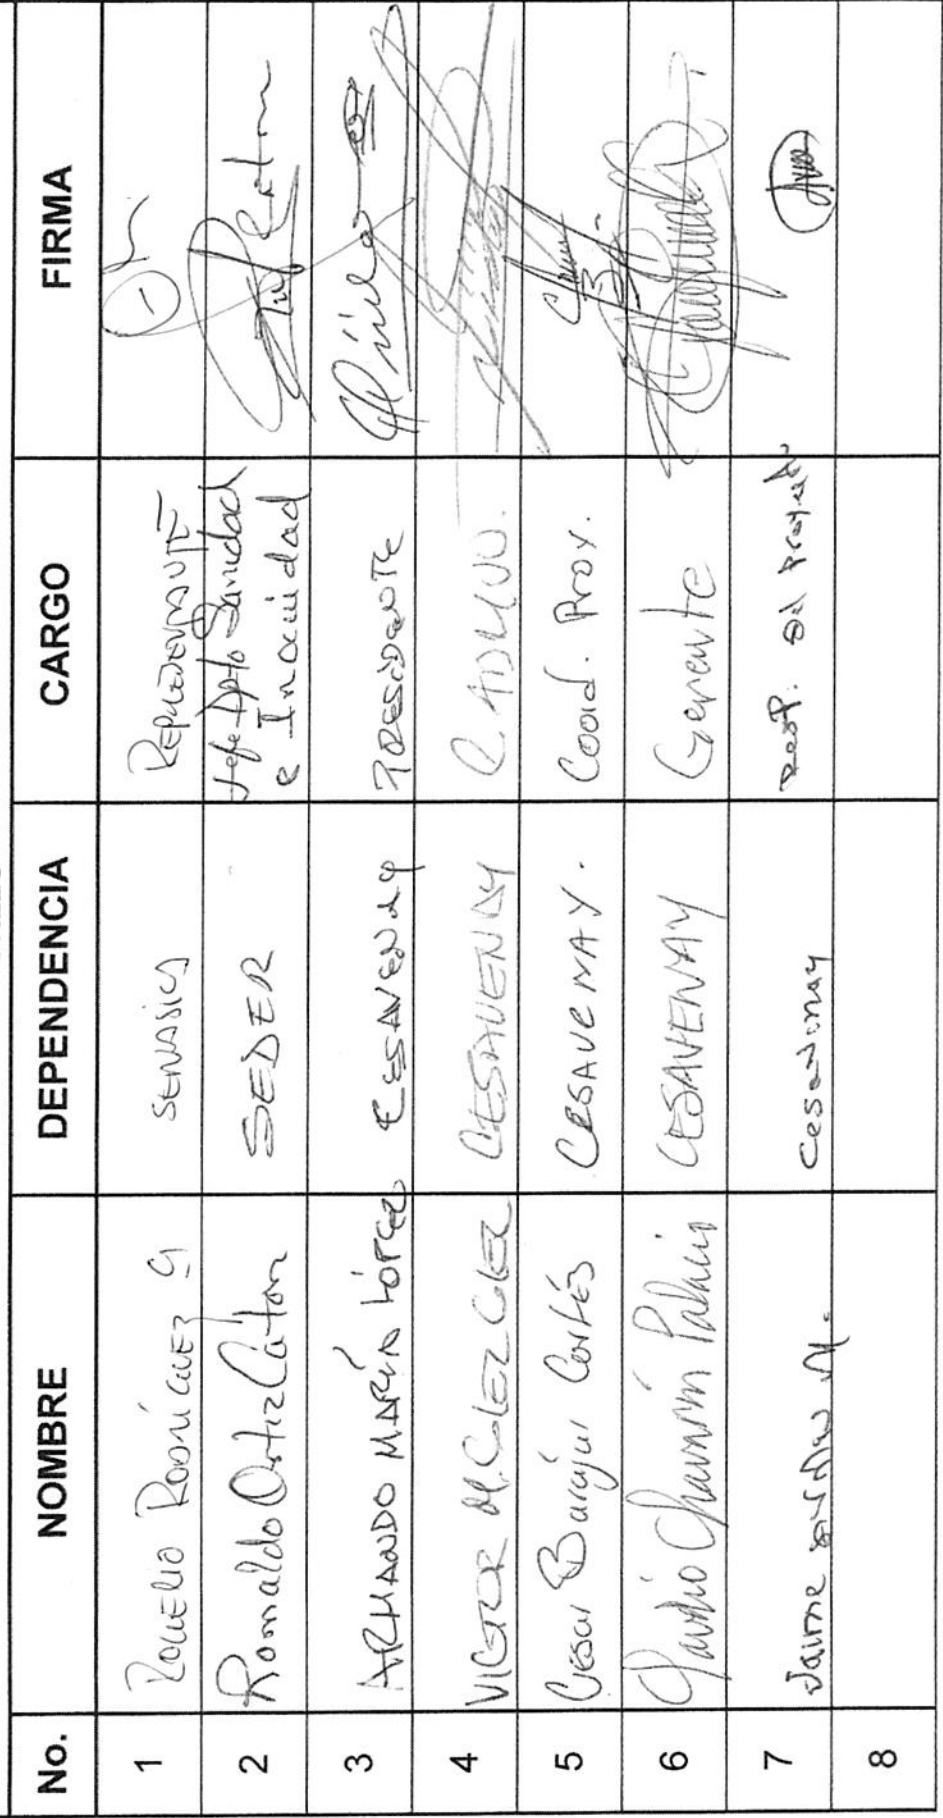 No. NOMBRE DEPENDENCIA CARGO FIRMA
1 ROGELIO RODRÍGUEZ G SENASICA REPRESENTANTE
2 Romaldo Ortiz Catón SEDER Jefe Dpto Sanidad
e Inocuidad
3 ARMANDO MARÍN LÓPEZ CESAVENAY PRESIDENTE
4 VICTOR M. GLEZ GLEZ CESAVENAY C. ADMVO.
5 César Barajas Cortés CESAVENAY. Coord. Proy.
6 Chavarín Palacio CESAVENAY Gerente
7 Jaime Cesavenay Resp. del Proyecto
8